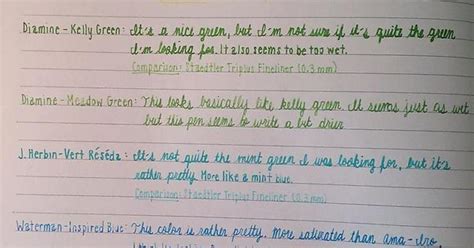 Diamine - Kelly Green: It's a nice green, but I'm not sure if it's quite the green
I'm looking for. It also seems to be too wet.
Comparison: Staedtler Triplus Fineliner (0.3 mm)
Diamine - Meadow Green: This looks basically like kelly green. It seems just as wet
but this pen seems to write a bit drier
J. Herbin - Vert Réséda: It's not quite the mint green I was looking for, but it's
rather pretty. More like a mint blue.
Comparison: Staedtler Triplus Fineliner (0.3 mm)
Waterman - Inspired Blue: This color is rather pretty. More saturated than ama-iro,